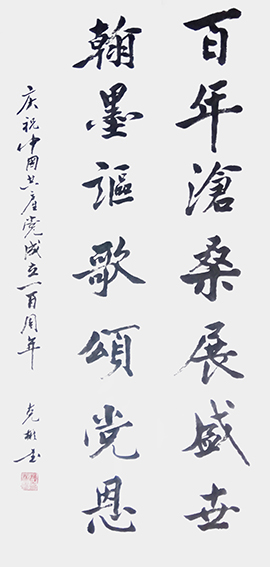 百年滄桑展盛世
翰墨謳歌頌党恩
庆祝中国共产党成立一百周年
克彬书